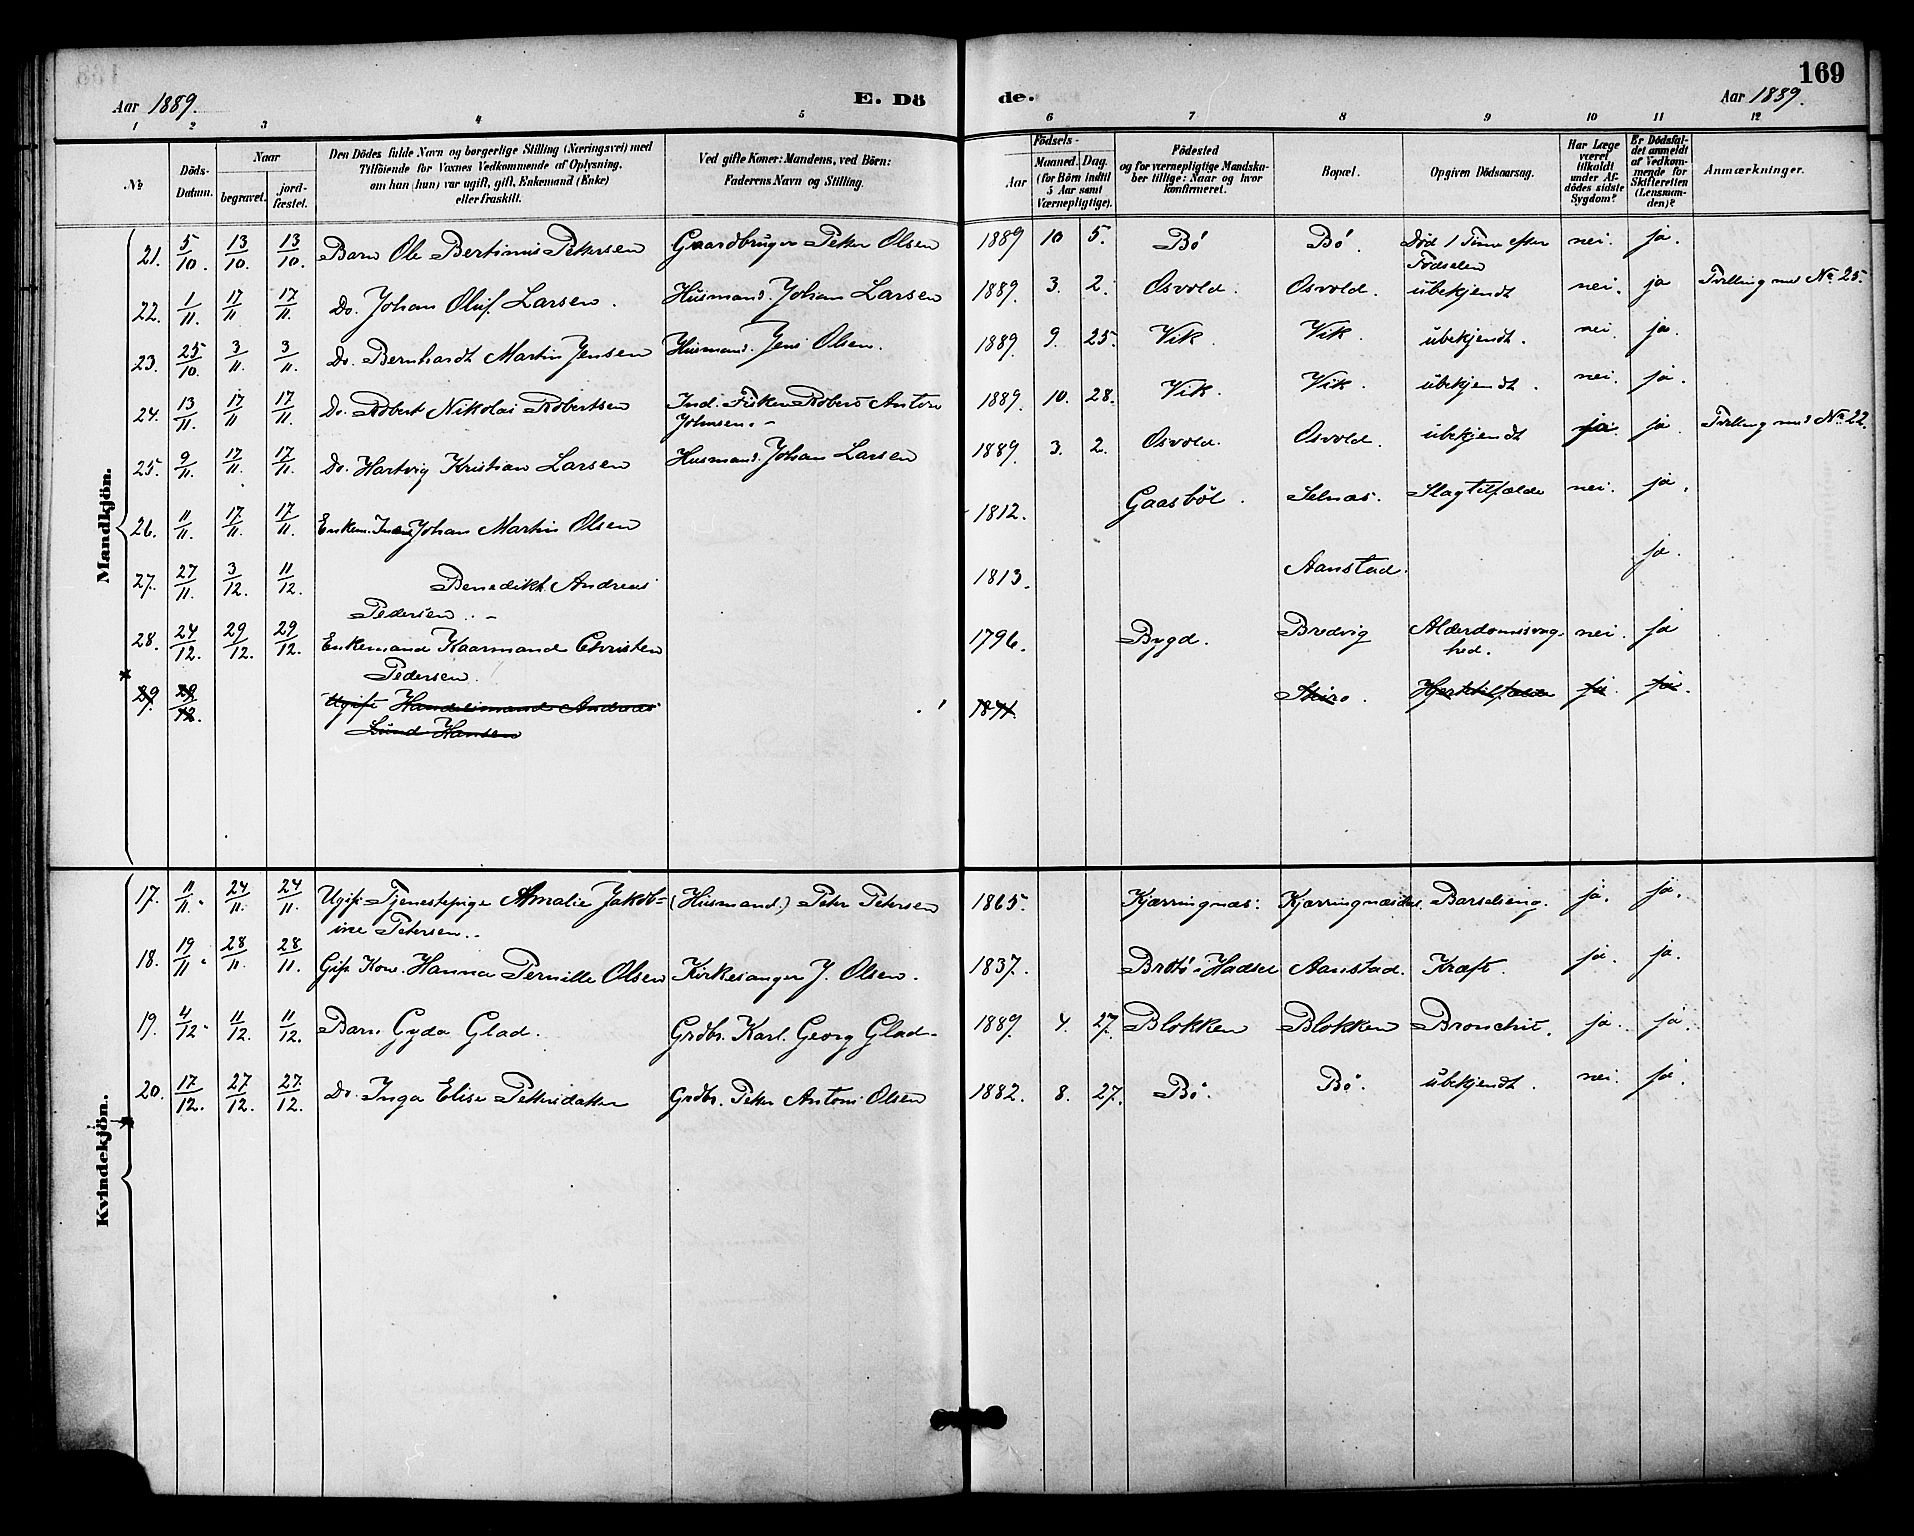 169
Aar 1889.
E. Döde.
Aar 1889.
1 2 3 4 5 6 7 8 9 10 11 12
No
Döds-Datum.
Naar
begravet.
jordfæstet.
Den Dödes fulde Navn og borgerlige Stilling (Næringsvei) med
Tilföiende for Voxnes Vedkommende af Oplysning,
om han (hun) var ugift, gift, Enkemand (Enke)
eller fraskilt.
Ved gifte Koner: Mandens, ved Börn:
Faderens Navn og Stilling.
Födsels-
Aar
Maaned. Dag.
(for Börn indtil
5 Aar samt
Værnepligtige).
Födested
og for værnepligtige Mandska-
ber tillige: Naar og hvor
konfirmeret.
Bopæl.
Opgiven Dödsaarsag.
Har Læge
været
tilkaldt
under Af-
dödes sidste
Sygdom?
Er Dödsfal-
det anmeldt
af Vedkom-
mende for
Skifteretten
(Lensman-
den)?
Anmærkninger.
Mandkjön.
21. 5/10. 13/10. 13/10. Barn Ole Bertinus Pettersen Gaardbruger Peter Olsen 1889 10 5. Bö Bö. Död 1 Time efter Födselen nei. ja.
22. 1/11. 17/11 17/11. Do. Johan Oluf Larsen. Husmand. Johan Larsen 1889. 3. 2. Osvold. Osvold. ubekjendt nei. ja Tvilling med No 25.
23. 25/10. 3/11 3/11. Do. Bernhardt Martin Jensen Husmand. Jens Olsen. 1889. 9. 25. Vik. Vik. ubekjendt. nei. ja.
24. 13/11. 17/11 17/11. Do. Robert Nikolai Robertsen Ind. Fisker Robert Anton
Johnsen. 1889. 10. 28. Vik. Vik. ubekjendt. nei. ja.
25. 9/11. 17/11. 17/11. Do. Hartvig Kristian Larsen Husmand. Johan Larsen 1889. 3. 2. Osvold. Osvold. ubekjendt ja. ja. Tvilling med No 22.
26. 11/11. 17/11. 17/11. Enkem. Johan Martin Olsen 1812. Gaasböl. Selnæs. Slagtilfælde nei. ja.
27. 27/11. 3/12. 11/12. Benedikt Andreas
Pedersen. 1813. Aanstad. ja.
28. 24/12. 29/12. 29/12. Enkemand Kaarmand Christen
Pedersen. 1796. Bygd. Bredvig Alderdomssvag-
hed. nei. ja
29. 29/12. Ugift Handelsmand Andreas
Lund Hansen 1871. Skiro. Hjertetilfælde ja. ja.
Kvindekjön.
17. 11/11. 24/11. 24/11. Ugift Tjenestepige Amalie Jakob-
ine Petersen. (Husmand.) Peter Petersen 1865. Kjærringnæs. Barselseng. ja. ja.
18. 19/11. 28/11. 28/11. Gift Kone Hanna Pernille Olsen Kirkesanger J. Olsen. 1837. Hadsel Aanstad. Kræft. ja. ja.
19. 4/12. 11/12. 11/12. Barn Gyda Glad. Grdbr. Karl Georg Glad 1889. 4. 27. Blokken Blokken Bronchit. ja. ja.
20. 17/12. 27/12. 27/12. Do. Inga Elise Pettersdatter Grdbr. Peter Antoni Olsen 1882. 8. 27. Bö. Bö. ubekjendt. nei. ja.